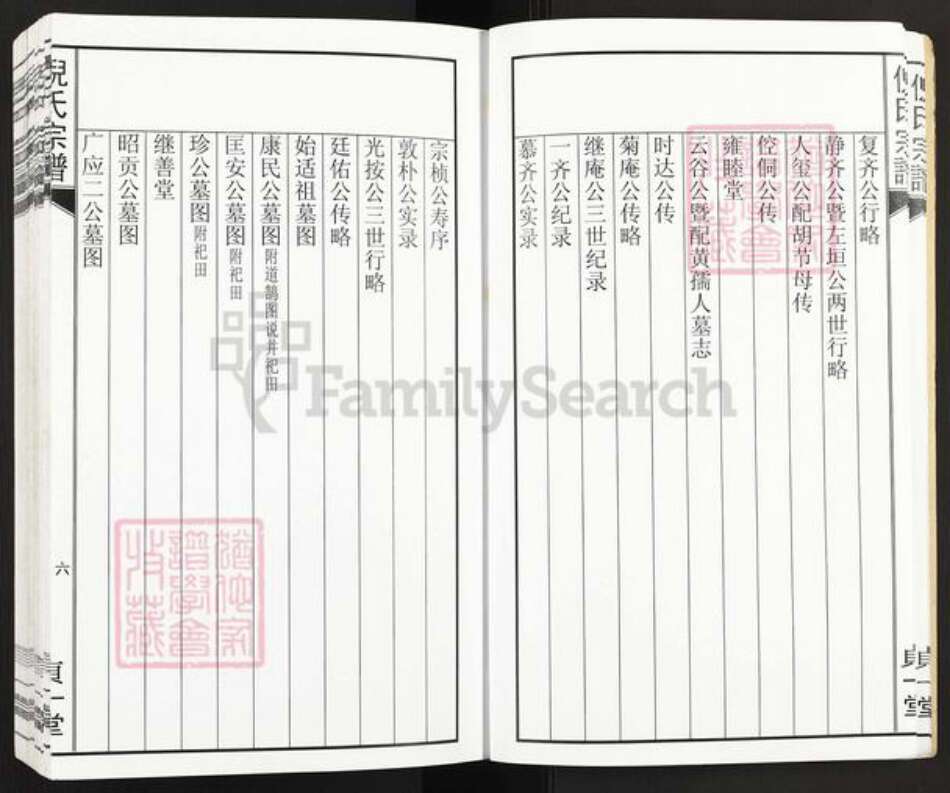 复齐公行略
静齐公暨左垣公两世行略
人玺公配胡节母传
倥侗公传
雍睦堂
云谷公暨配黄孺人墓志
时达公传
菊庵公传略
继庵公三世纪录
一齐公纪录
慕齐公实录
宗桢公寿序
敦朴公实录
光按公三世行略
廷佑公传略
始适祖墓图
康民公墓图附道鹊图说并祀田
匡安公墓图附祀田
珍公墓图附祀田
继善堂
昭贡公墓图
广应二公墓图
倪氏宗谱
六
貞一堂
FamilySearch